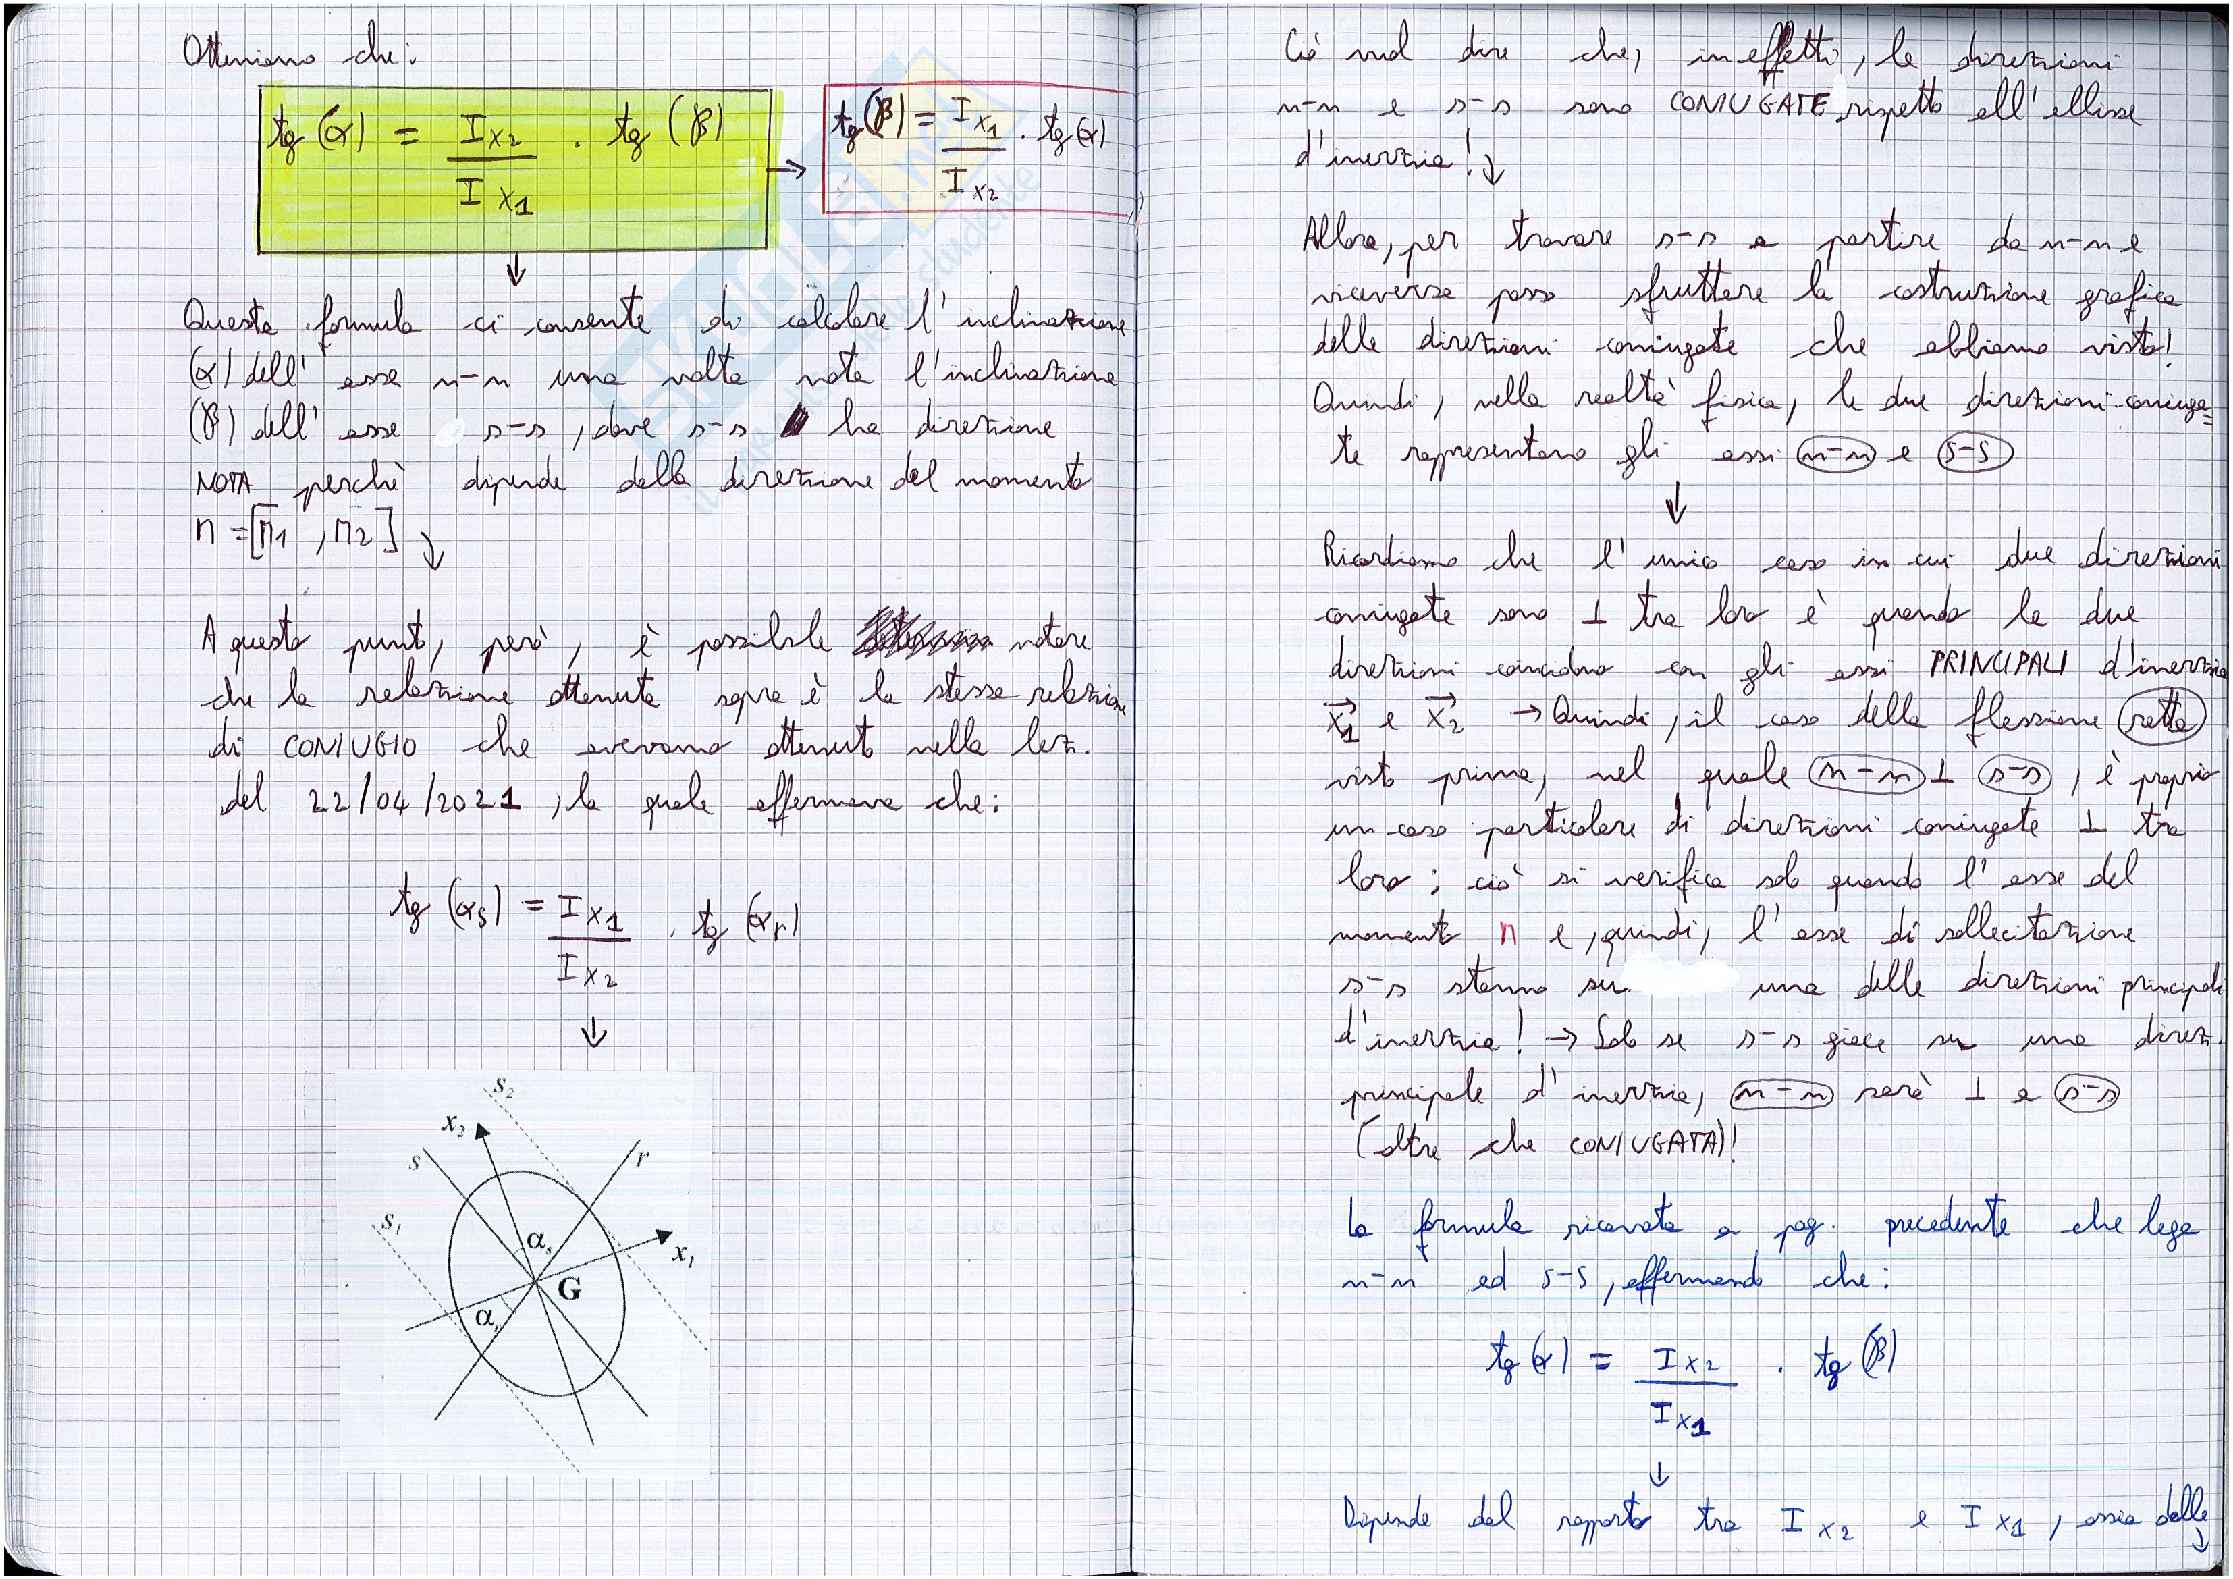 Otteniamo che:
tg (α) = I x2 / I x1 . tg (β) → tg (β) = I x1 / I x2 . tg (α)
↓
Questa formula ci consente di calcolare l'inclinazione
(α) dell'asse n-n una volta nota l'inclinazione
(β) dell'asse s-s, dove s-s ha direzione
NOTA perchè dipende dalla direzione del momento
m = [m1 , m2] ↓
A questo punto, però, è possibile notare
che la relazione ottenuta sopra è la stessa relazione
di CONIUGIO che avevamo ottenuto nella lez.
del 22/04/2021, la quale affermava che:
tg (αs) = I x1 / I x2 . tg (αr)
↓
s2
x2
s
r
s1
αs
x1
G
αr
Ciò vuol dire che, in effetti, le direzioni
n-n e s-s sono CONIUGATE rispetto all'ellisse
d'inerzia! ↓
Allora, per trovare s-s a partire da n-n e
viceversa posso sfruttare la costruzione grafica
delle direzioni coniugate che abbiamo visto!
Quindi, nella realtà fisica, le due direzioni coniuga=
te rappresentano gli assi n-n e s-s
↓
Ricordiamo che l'unico caso in cui due direzioni
coniugate sono ⊥ tra loro è quando le due
direzioni coincidono con gli assi PRINCIPALI d'inerzia
x1 e x2 → Quindi, il caso della flessione retta
visto prima, nel quale n-n ⊥ s-s, è proprio
un caso particolare di direzioni coniugate ⊥ tra
loro; ciò si verifica solo quando l'asse del
momento m e, quindi, l'asse di sollecitazione
s-s stanno su una delle direzioni principali
d'inerzia! → Solo se s-s giace su una direz.
principale d'inerzia, n-n sarà ⊥ a s-s
(oltre che CONIUGATA)!
La formula ricavata a pag. precedente che lega
n-n ed s-s, affermando che:
tg (α) = I x2 / I x1 . tg (β)
↓
Dipende dal rapporto tra I x2 e I x1, ossia dalla
↓